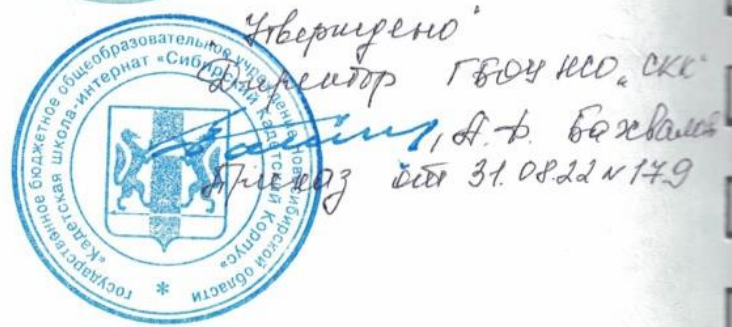 "Утверждено"
Директор ГБОУ НСО "СКК"
, А.Ф. Бахвалов
Приказ от 31.08.22 N 179
государственное бюджетное общеобразовательное учреждение Новосибирской области
«Кадетская школа-интернат «Сибирский Кадетский Корпус»